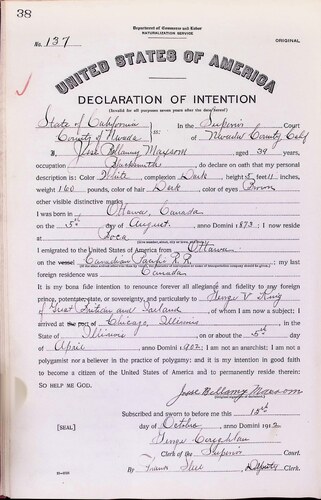 38
Department of Commerce and Labor
NATURALIZATION SERVICE
No. 137
ORIGINAL
UNITED STATES OF AMERICA
DECLARATION OF INTENTION
(Invalid for all purposes seven years after the date hereof)
State of California
County of Nevada
ss:
In the Superior Court
of Nevada County Calf
I, Jesse Bellamy aged 39 years,
occupation Blacksmith, do declare on oath that my personal
description is: Color White, complexion Dark, height 5 feet 11 inches,
weight 160 pounds, color of hair Dark, color of eyes Brown
other visible distinctive marks
I was born in Ottawa, Canada
on the 5th day of August, anno Domini 1873; I now reside
at
I emigrated to the United States of America from Ottawa
on the vessel Canadian R.R.; my last
foreign residence was Canada
It is my bona fide intention to renounce forever all allegiance and fidelity to any foreign
prince, potentate, state, or sovereignty, and particularly to George V King
of Great Britain and Ireland, of whom I am now a subject; I
arrived at the port of Chicago, Illinois, in the
State of Illinois on or about the 5th day
of April, anno Domini 1902; I am not an anarchist; I am not a
polygamist nor a believer in the practice of polygamy; and it is my intention in good faith
to become a citizen of the United States of America and to permanently reside therein:
SO HELP ME GOD.
Jesse Bellamy
Subscribed and sworn to before me this
[SEAL] day of October, anno Domini 191
George
Clerk of the Superior Court.
By Deputy Clerk